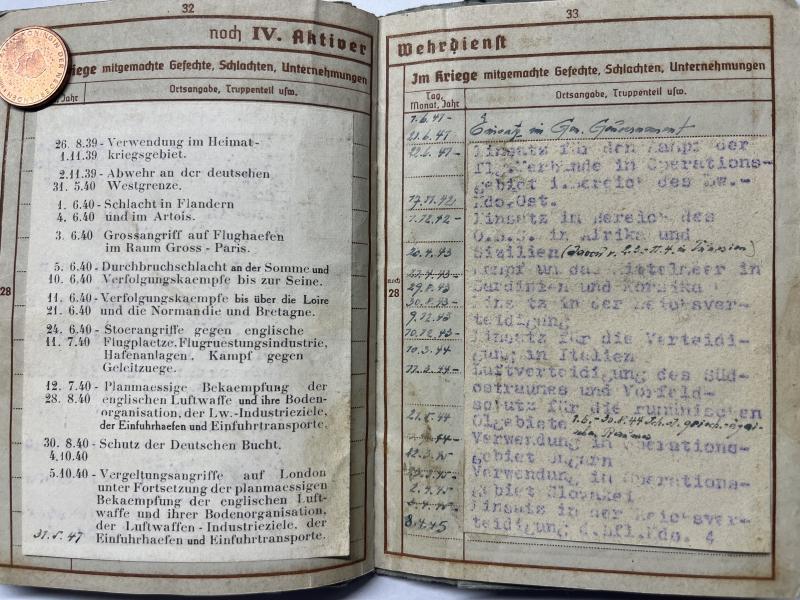 32
noch IV. Aktiver
Kriege mitgemachte Gefechte, Schlachten, Unternehmungen
Jahr
Ortsangabe, Truppenteil usw.
26. 8.39 - Verwendung im Heimat-
1.11.39 kriegsgebiet.
2.11.39 - Abwehr an der deutschen
31. 5.40 Westgrenze.
1. 6.40 - Schlacht in Flandern
4. 6.40 und im Artois.
3. 6.40 Grossangriff auf Flughaefen
im Raum Gross - Paris.
5. 6.40 - Durchbruchschlacht an der Somme und
10. 6.40 Verfolgungskaempfe bis zur Seine.
11. 6.40 - Verfolgungskaempfe bis über die Loire
21. 6.40 und die Normandie und Bretagne.
24. 6.40 - Stoerangriffe gegen englische
11. 7.40 Flugplaetze, Flugruestungsindustrie,
Hafenanlagen, Kampf gegen
Geleitzuege.
12. 7.40 - Planmaessige Bekaempfung der
28. 8.40 englischen Luftwaffe und ihre Boden-
organisation, der Lw.-Industrieziele,
der Einfuhrhaefen und Einfuhrtransporte.
30. 8.40 - Schutz der Deutschen Bucht.
4.10.40
5.10.40 - Vergeltungsangriffe auf London
unter Fortsetzung der planmaessigen
Bekaempfung der englischen Luft-
waffe und ihrer Bodenorganisation,
der Luftwaffen - Industrieziele, der
31.5.47 Einfuhrhaefen und Einfuhrtransporte.
28
33
Wehrdienst
Im Kriege mitgemachte Gefechte, Schlachten, Unternehmungen
Tag, Monat, Jahr
Ortsangabe, Truppenteil usw.
noch 28
1.6.41 -
21.6.41 Einsatz in Gen. Gouvernement
22.6.41 - Einsatz für den Kampf der
flg. Verbände in Operations-
gebiet i. Bereich des Lw.-
17.11.42 Kdo. Ost.
1.12.42 - Einsatz im Bereich des
O.B.S. in Afrika und
20.4.43 Sizilien
22.4.43 - Kampf um das Mittelmeer in
29.8.43 Sardinien und Korsika
30.8.43 - Einsatz in der Reichsver-
9.12.43 teidigung
10.12.43 - Einsatz für die Verteidi-
10.3.44 gung in Italien
11.3.44 - Luftverteidigung des Süd-
ostraumes und Vorfeld-
schutz für die rumänischen
21.8.44 Ölgebiete
44 - Verwendung im Operations-
12.3.45 gebiet Ungarn
Verwendung im Operations-
2.4.45 gebiet Slowakei
Einsatz in der Reichsver-
8.4.45 teidigung d. Lfl. Kdo. 4